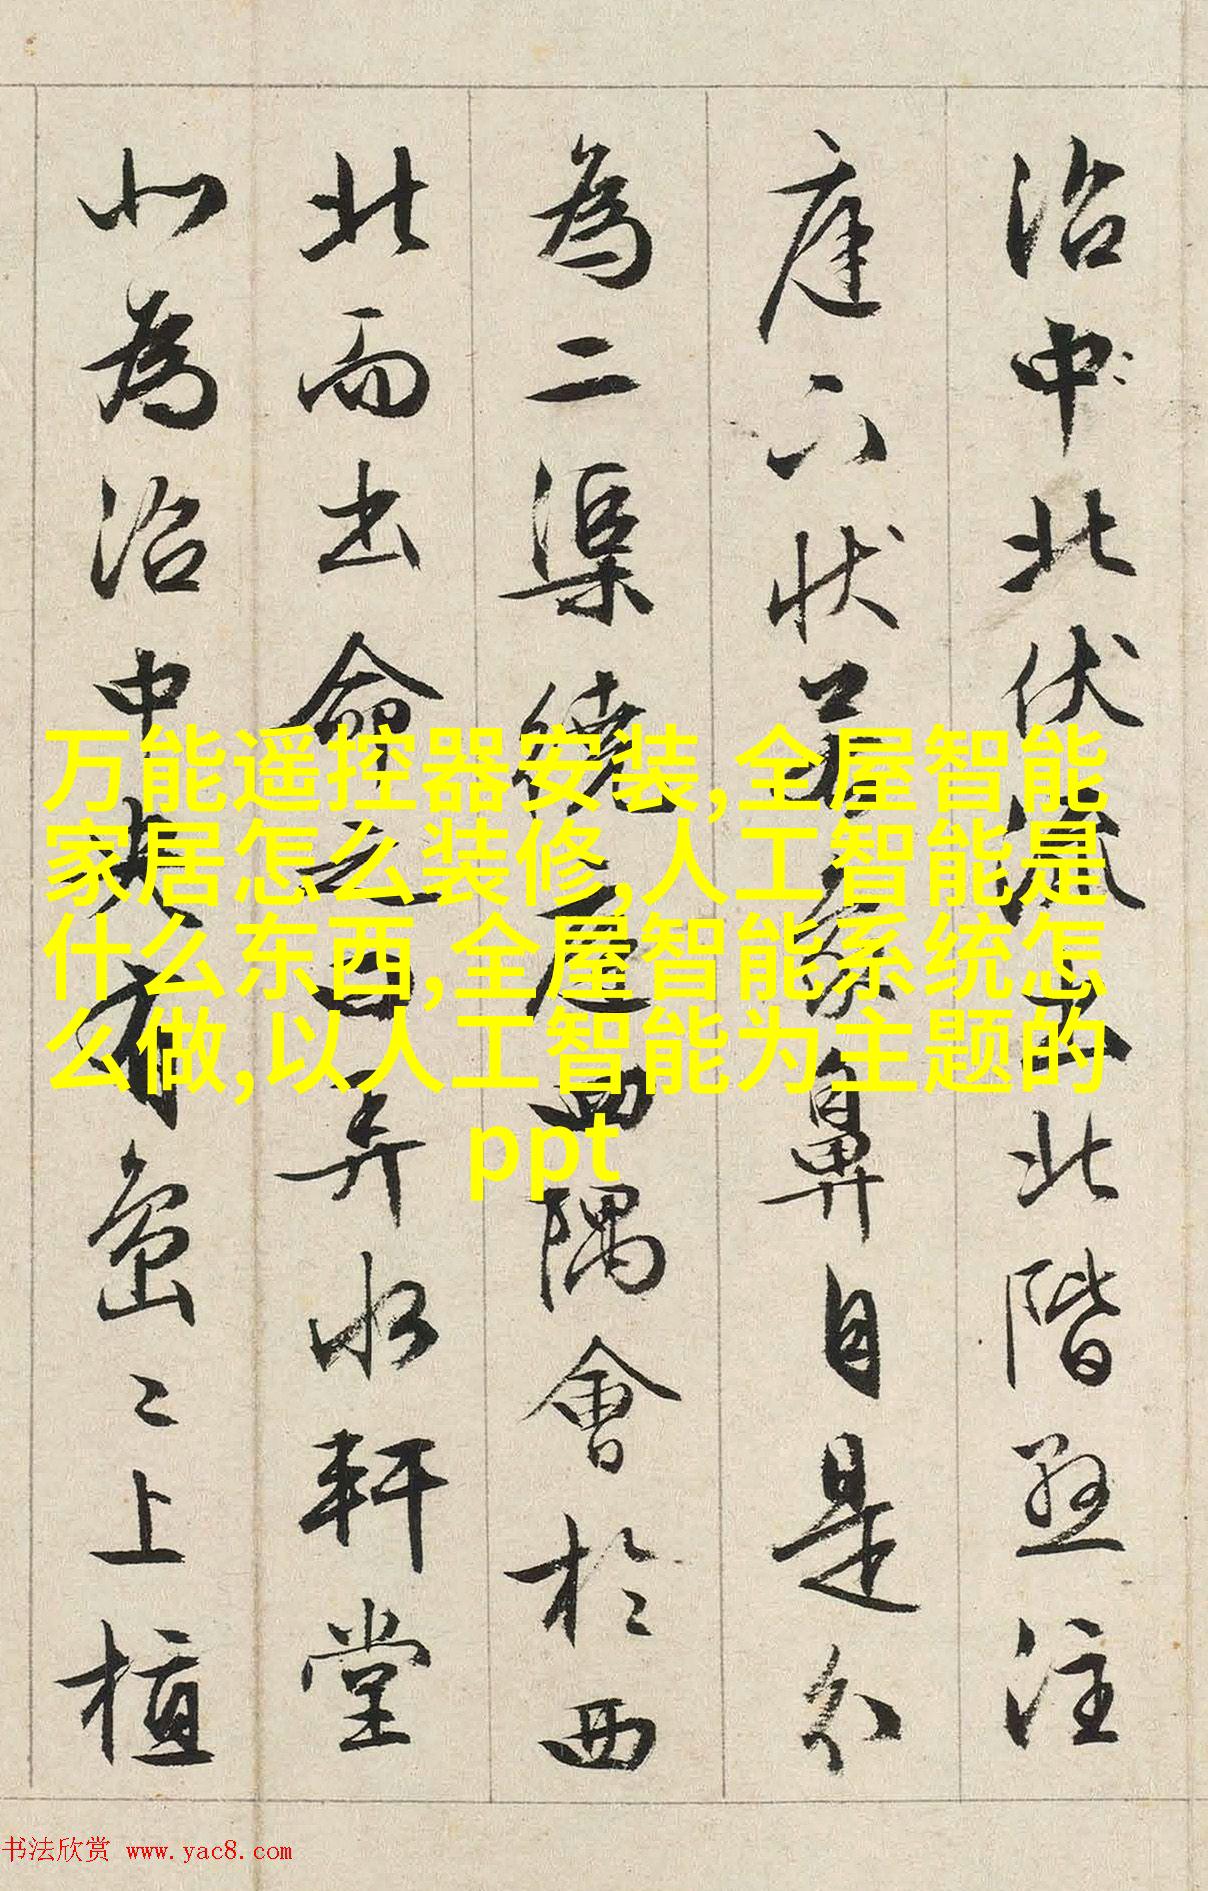 沼中北伏流出北階懸注
庭下状若象鼻自是分
為二渠繞庭四隅會於西
北而出命之曰弄水軒堂
北為沼中央有島〻上植
万能遥控器安裝,全屋智能
家居怎么装修,人工智能是
什么东西,全屋智能系统怎
么做,以人工智能为主题的
ppt
书法欣赏 www.yac8.com